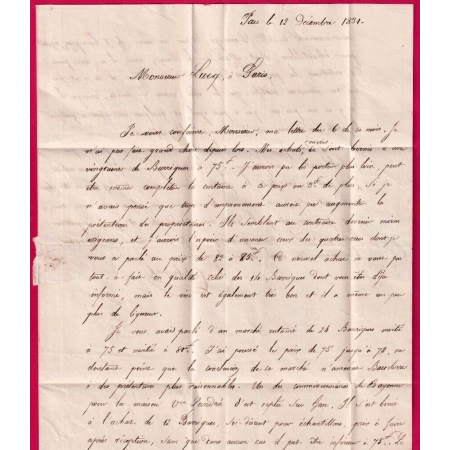 Pau le 12 décembre 1831.
Monsieur Lucq, à Paris,
Je vous confirme Monsieur, ma lettre du 6 de ce mois. Je
n'ai pas fait grand chose depuis lors. Mes achats, se sont bornés à une
vingtaine de Barriques à 75f. J'aurais pu les porter plus loin peut
être même compléter la centaine à ce prix ou 3f de plus, si je
n'avais pensé que trop d'empressement aurait pu augmenter les
prétentions des propriétaires. Ils semblent au contraire devenir moins
exigeans, et j'aurai l'espoir d'amener ceux des quatre eaux dont je
vous ai parlé au prix de 82 à 85f. Ce nouvel achat ne vaut pas
tout à fait en qualité celui des 14 Barriques dont vous êtes déjà
informé, mais le vin est également très bon et il a même un peu
plus de liqueur.
Je vous avais parlé d'un marché entamé de 24 Barriques
à 75 et moitié à 80f. J'ai poussé le prix de 75 jusqu'à 78, ne
doutant point que la conclusion de ce marché n'amenat
à des prétentions plus raisonnables. Un des commissionnaires de Bayonne
pour la maison Vve s'est replié sur Gan. Il s'est borné
à l'achat de 12 Barriques, soi-disant pour échantillons, prix à faire
après réception, sans que dans aucun cas il put être inférieur à 75f. Le